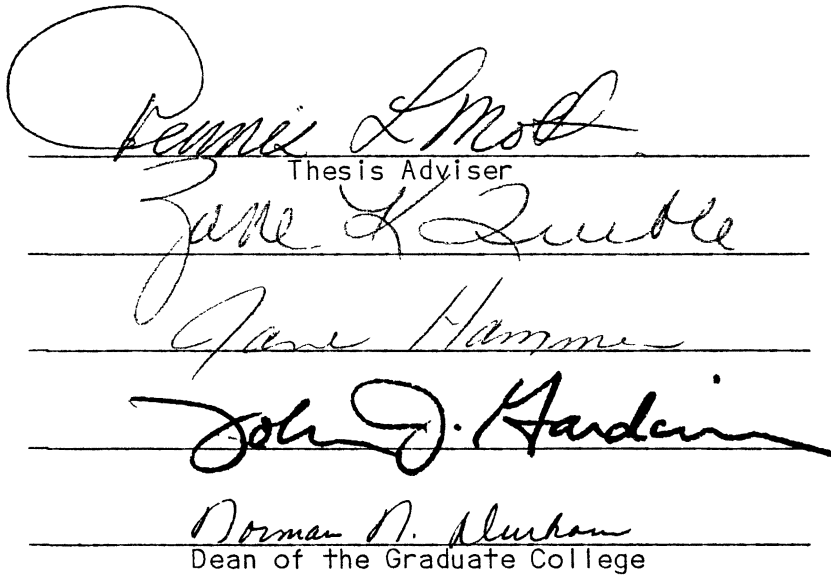 Dennis L Mott
Thesis Adviser
Zane K Quible
Jane Hammer
John J. Gardiner
Norman N. Durham
Dean of the Graduate College